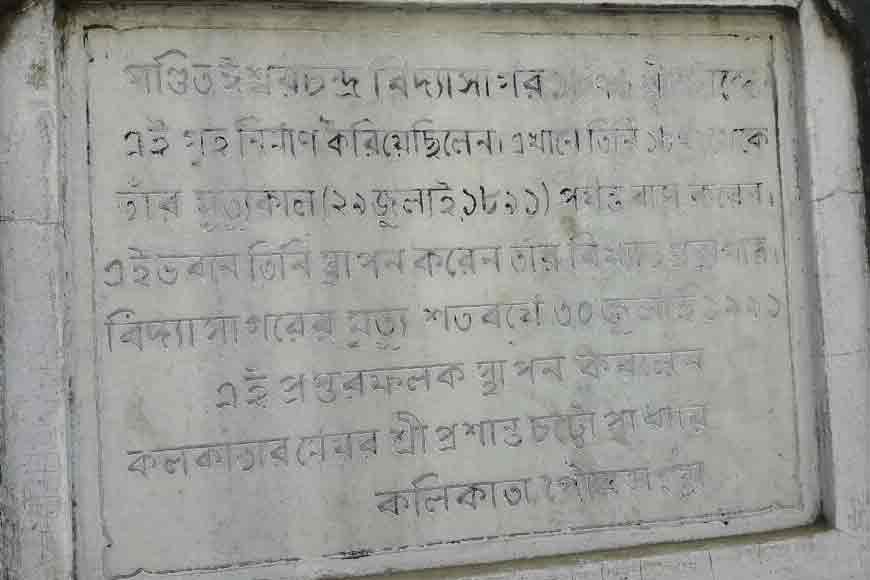 পণ্ডিত ঈশ্বরচন্দ্র বিদ্যাসাগর
এই গৃহ নির্মাণ করিয়েছিলেন। এখানে তিনি
তাঁর মৃত্যুকাল (২৯ জুলাই, ১৮৯১) পর্যন্ত বাস করেন।
এই ভবনে তিনি স্থাপন করেন তাঁর বিখ্যাত গ্রন্থাগার।
বিদ্যাসাগরের মৃত্যু শতবর্ষে ৩০ জুলাই ১৯৯১
এই প্রস্তরফলক স্থাপন করলেন
কলকাতার মেয়র শ্রী প্রশান্ত চট্টোপাধ্যায়
কলিকাতা পৌরসংস্থা